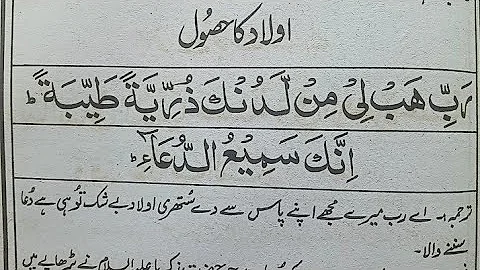 اولاد کا حصُول
رَبِّ هَبْ لِیْ مِنْ لَّدُنْكَ ذُرِّيَّةً طَيِّبَةً ۚ
اِنَّكَ سَمِيْعُ الدُّعَآءِ ؕ
ترجمہ:۔ اے رب میرے مجھے اپنے پاس سے دے سُتھری اولاد بے شک تُو ہی ہے دُعا
سننے والا۔
علیہ السلام نے بڑھاپے میں